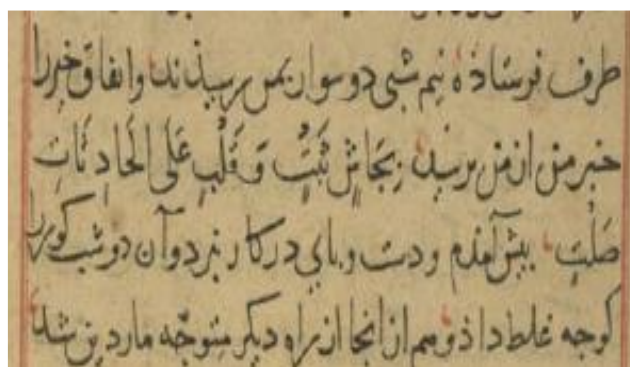 طرف فرستاذه نیم شبی دو سوار بمن رسیذند و اتفاق خیر را
خبر من از من پرسیدند بجاش ثبت و قلب علی الحادثات
صلت پیش آمدم و دست و پای در کار نبرد و آن دو شب کور را
کوجه غلط داذ و هم از انجا از راه دیکر متوجه ماردین شد